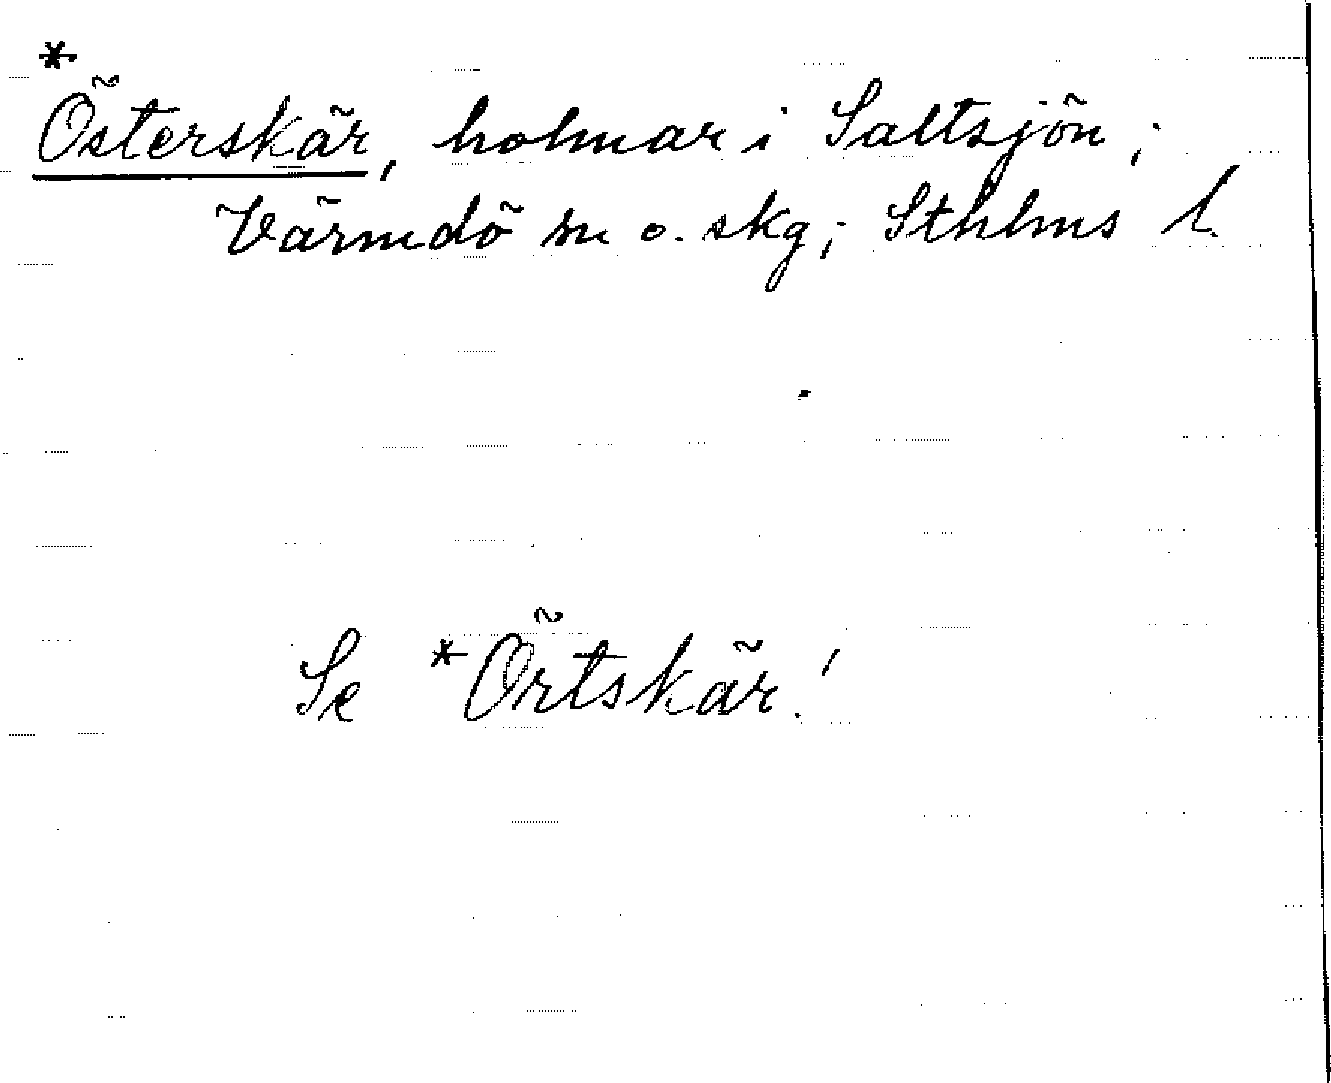 *
Österskär, holmar i Saltsjön;
Värmdö sn o. skg; Sthlms l.
Se *Örtskär!